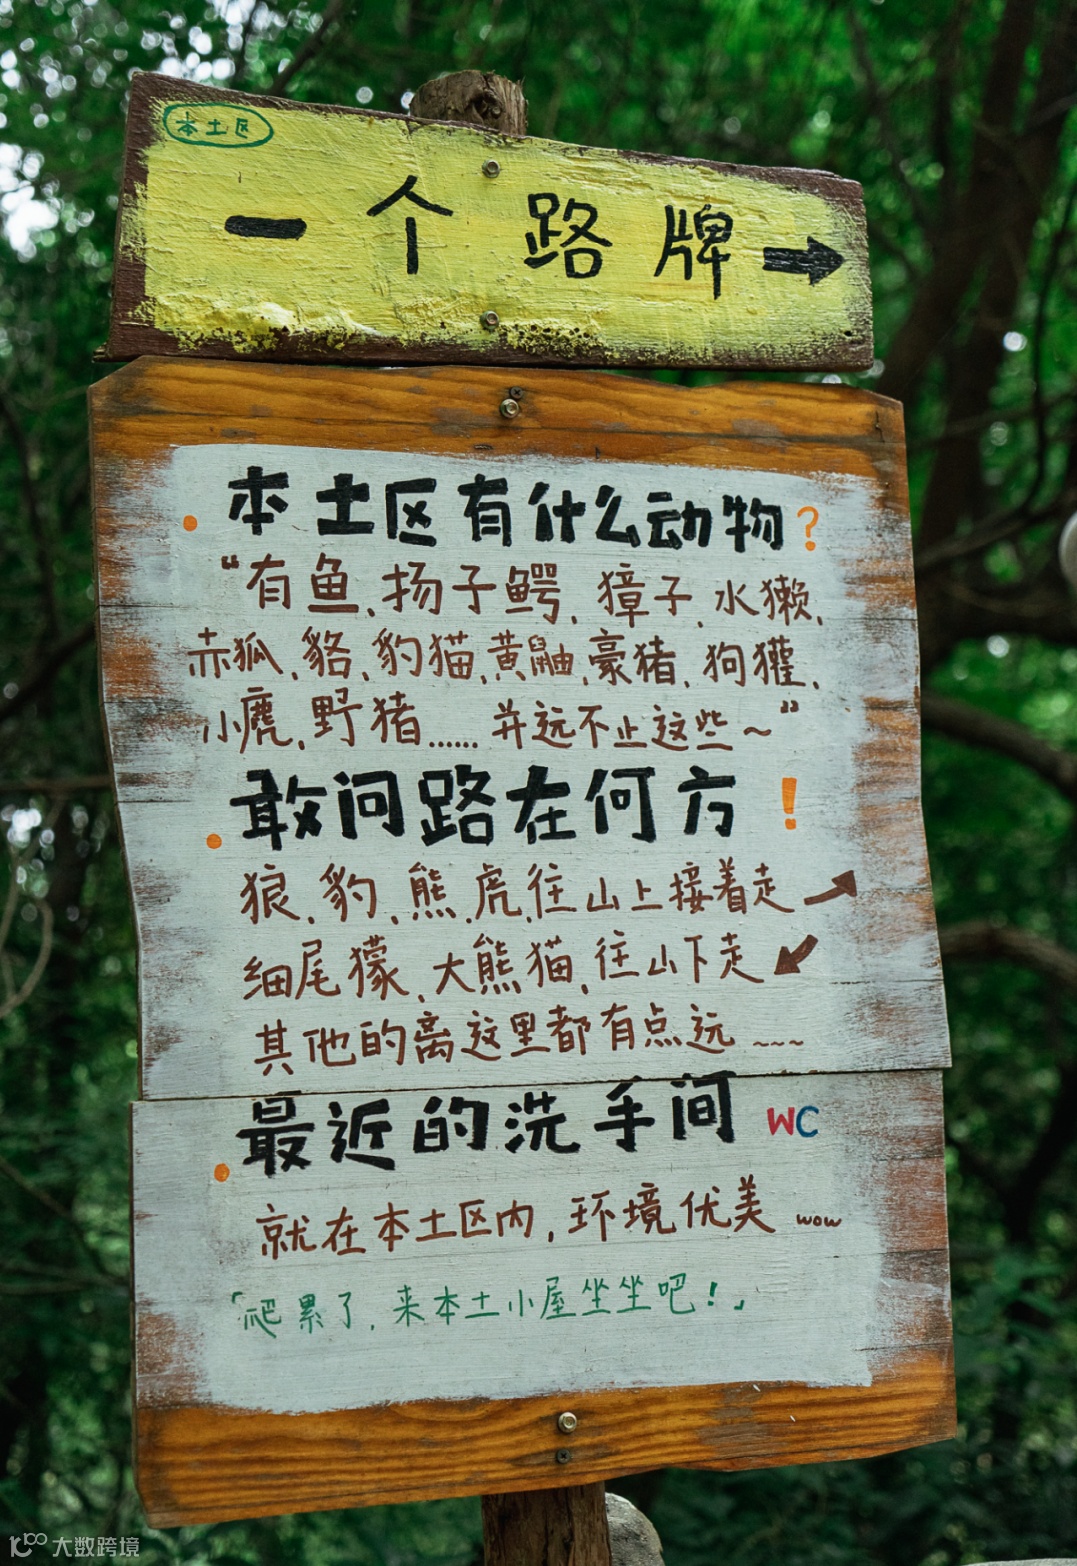 本土区
一个路牌→
本土区有什么动物?
“有鱼、扬子鳄、獐子、水獭、
赤狐、貉、豹猫、黄鼬、豪猪、狗獾、
小麂、野猪……并远不止这些~”
敢问路在何方!
狼、豹、熊、虎、往山上接着走
细尾獴、大熊猫、往山下走
其他的离这里都有点远~~~
最近的洗手间 WC
就在本土区内,环境优美 wow
「爬累了,来本土小屋坐坐吧!」
大数跨境